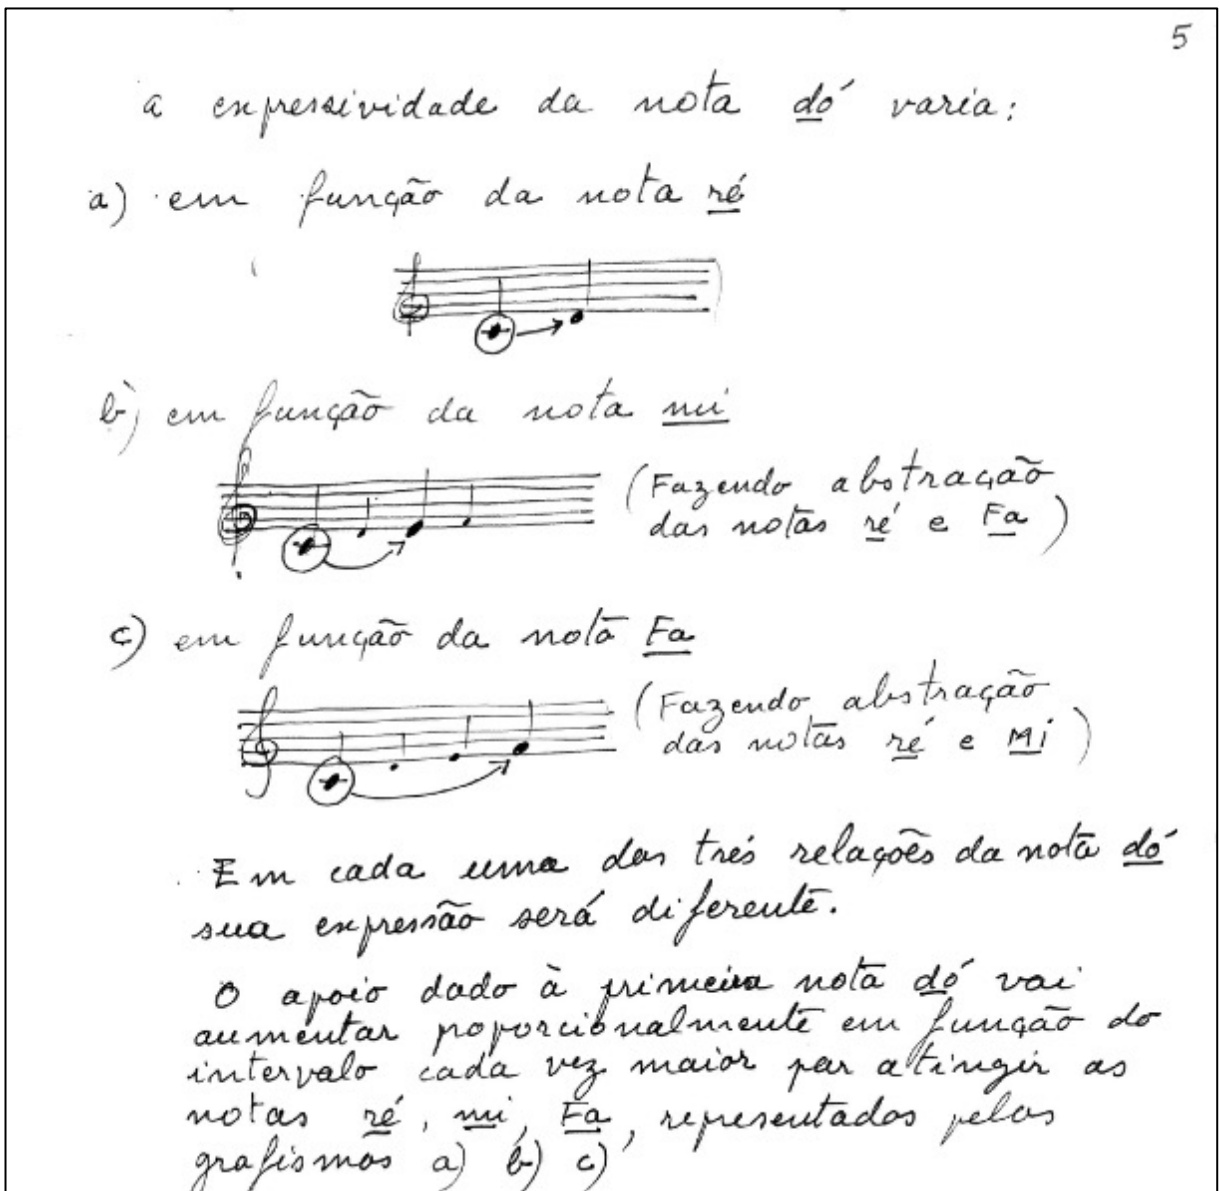 5
a expressividade da nota dó varia:
a) em função da nota ré
b) em função da nota mi
(Fazendo abstração
das notas ré e Fa)
c) em função da nota Fa
(Fazendo abstração
das notas ré e Mi)
Em cada uma das três relações da nota dó
sua expressão será diferente.
O apoio dado à primeira nota dó vai
aumentar poporcionalmente em função do
intervalo cada vez maior par atingir as
notas ré, mi, Fa, representadas pelos
grafismos a) b) c)